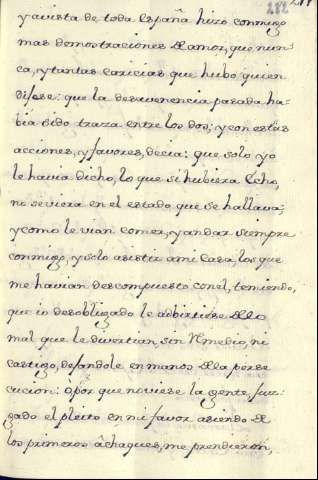 282
y avista de toda España hizo conmigo
mas demostraciones de amor, que nun-
ca, y tantas caricias que hubo quien
dijese: que la desavenencia pasada ha-
bia sido traza entre los dos; y con estas
acciones, y favores, decia: que solo yo
le havia dicho, lo que si hubiera echo,
no se viera en el estado que se hallava;
y como le vian comer, y andar siempre
conmigo, y solo asistir a mi casa, los que
me havian descompuesto con el, temiendo,
que io desobligado le adbirtiese de lo
mal que le divertian, sin remedio, ni
castigo, dejandole en manos de la perse
cucion: o por que no viese la gente, juz-
gado el pleito en mi favor asiendo de
los primeros achaques, me prendieron,